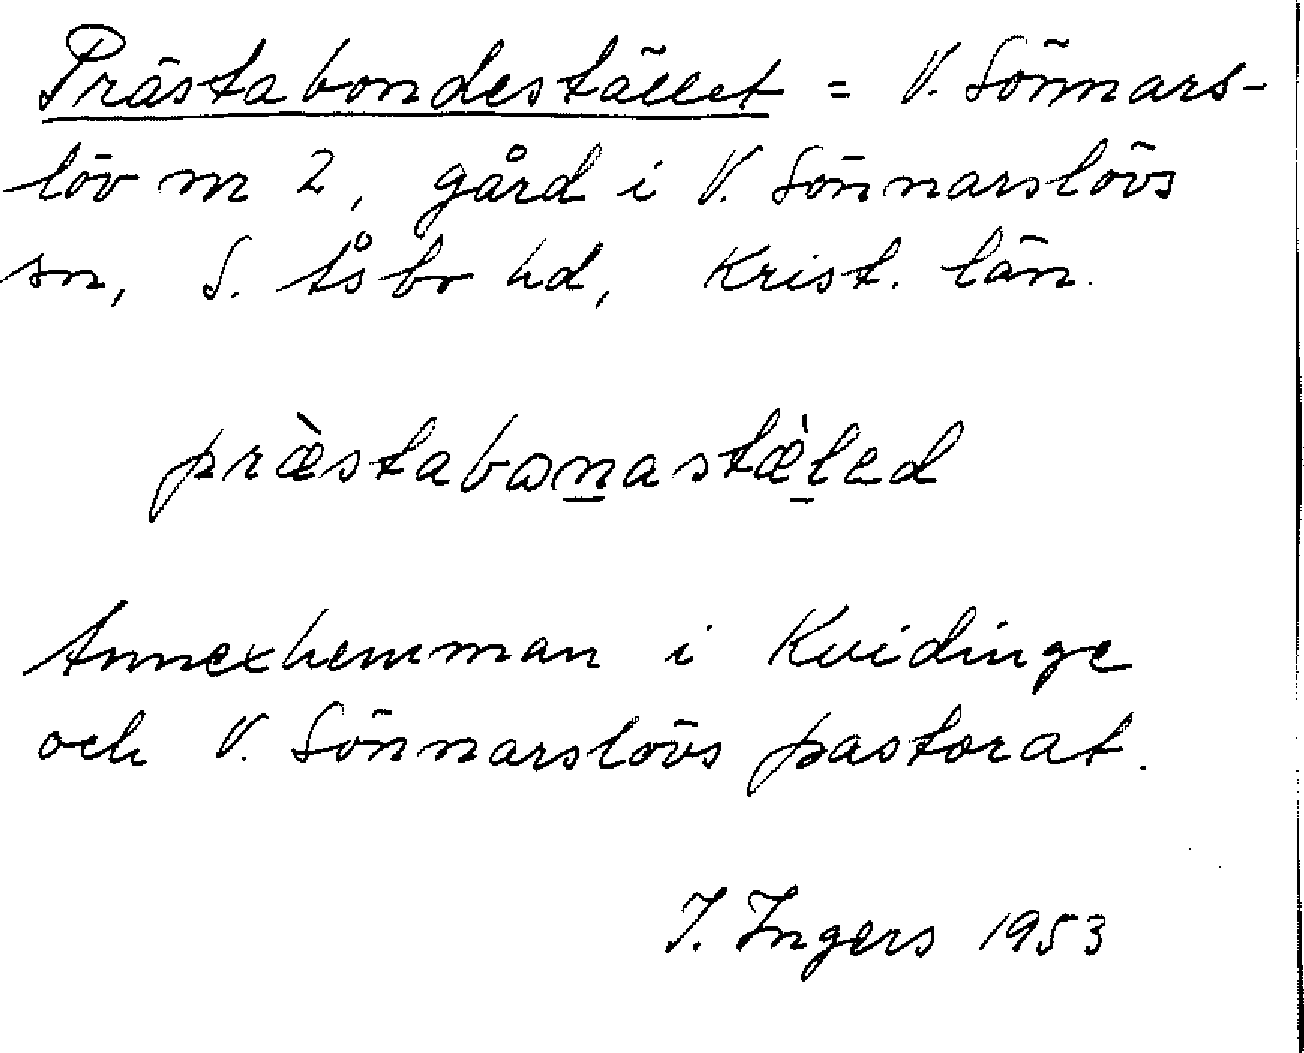 Prästabondestället = V. Sönnars-
löv nr 2, gård i V. Sönnarslövs
sn, S. Åsbo hd, Krist. län.
præ̀stabωn̲astæ̀l̲ed
Annexhemman i Kvidinge
och V. Sönnarslövs pastorat.
I. Ingers 1953